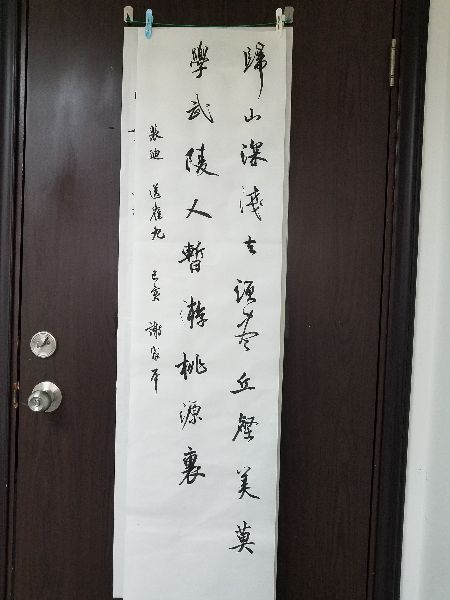 歸山深淺去須盡丘壑美莫
學武陵人暫游桃源裏
裴迪 送崔九 己亥 謝家平